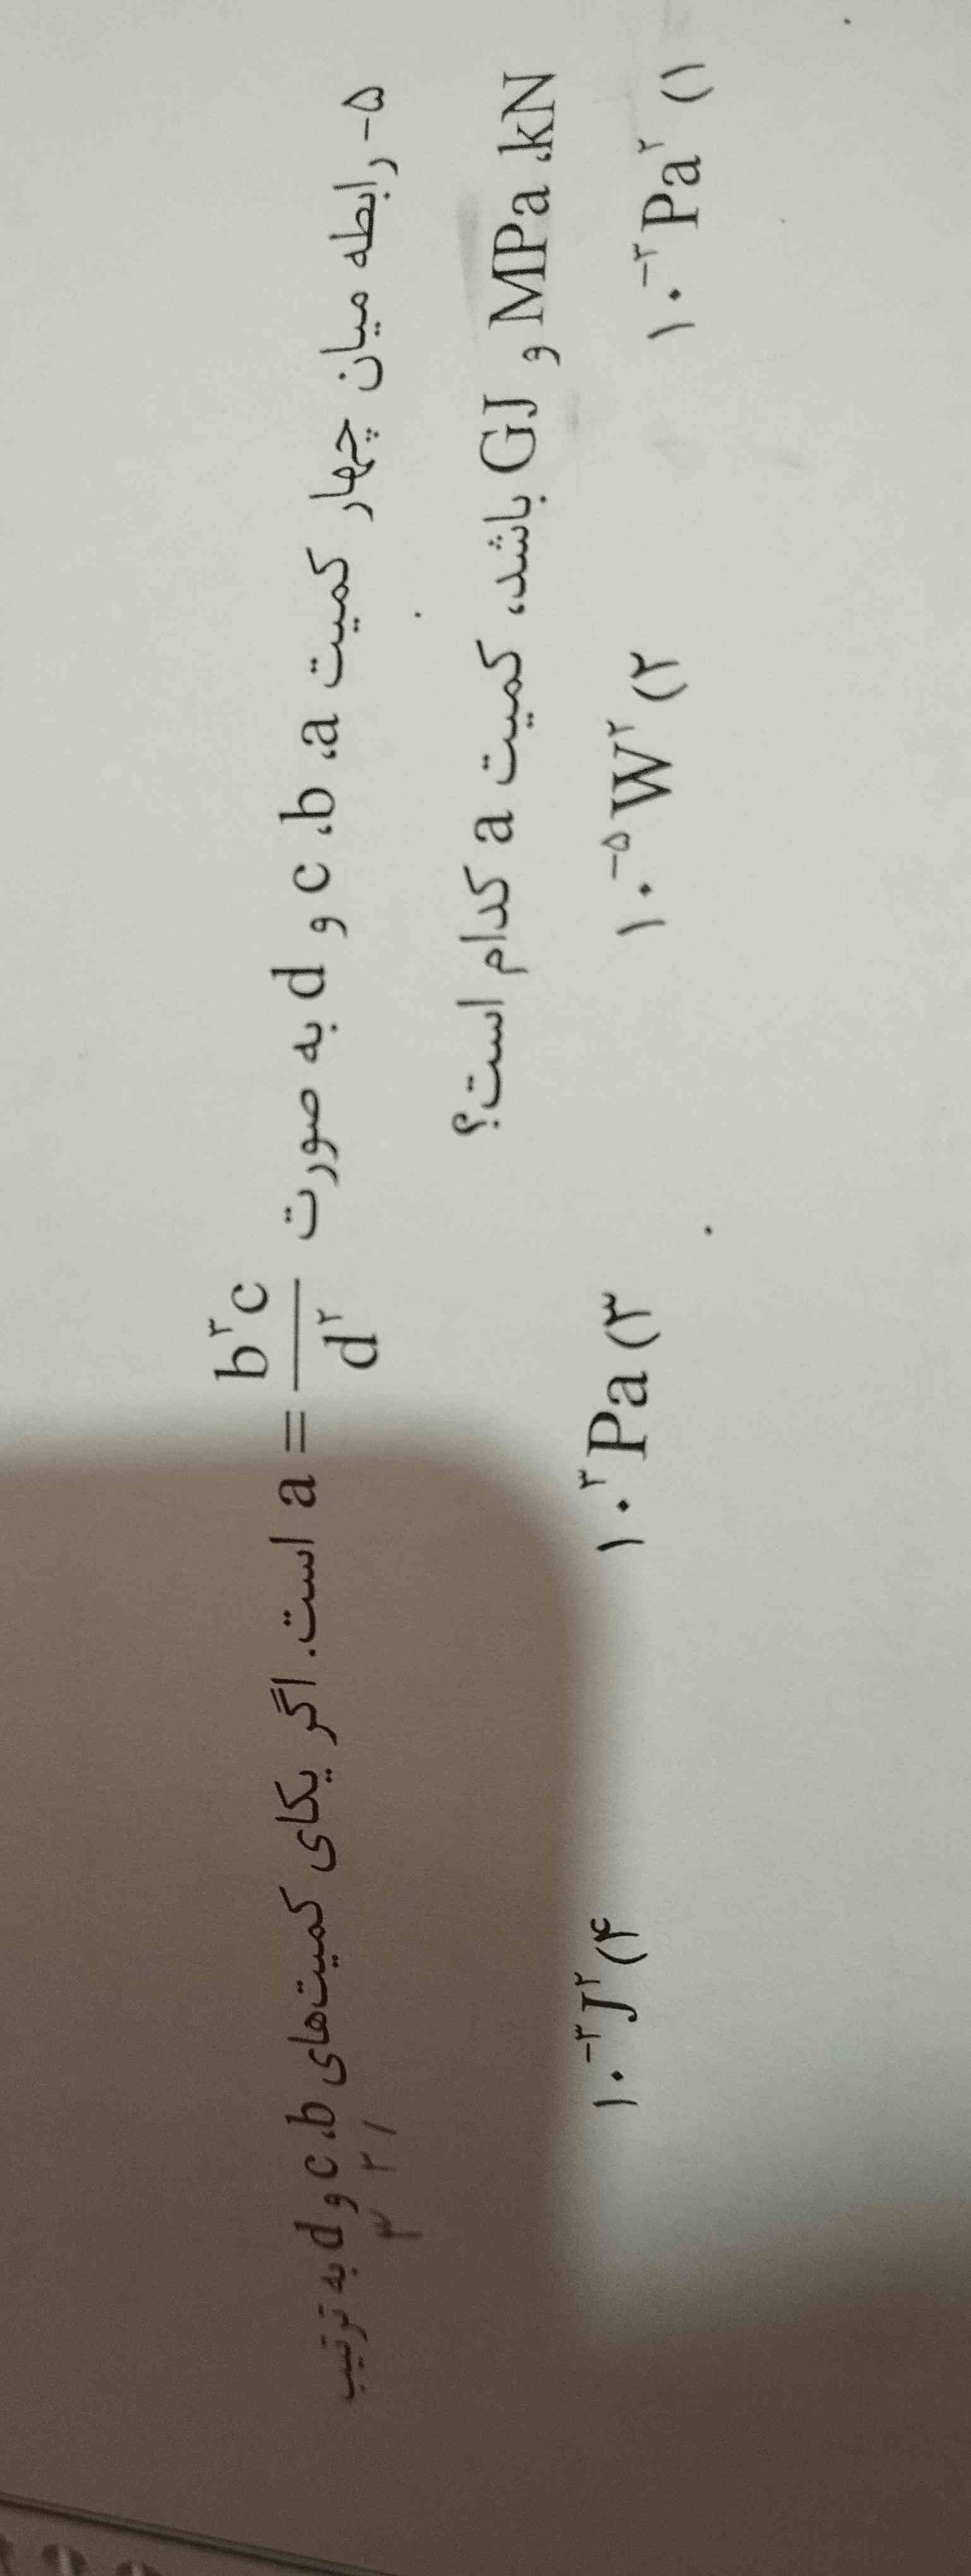 ۵- رابطه میان چهار کمیت a، b، c و d به صورت a = b³c / d² است. اگر یکای کمیت‌های b، c و d به ترتیب
۱ ۲ ۳
kN، MPa و GJ باشد، کمیت a کدام است؟
۱) ۱۰⁻³Pa² ۲) ۱۰⁻⁵W² ۳) ۱۰³Pa ۴) ۱۰⁻³J²